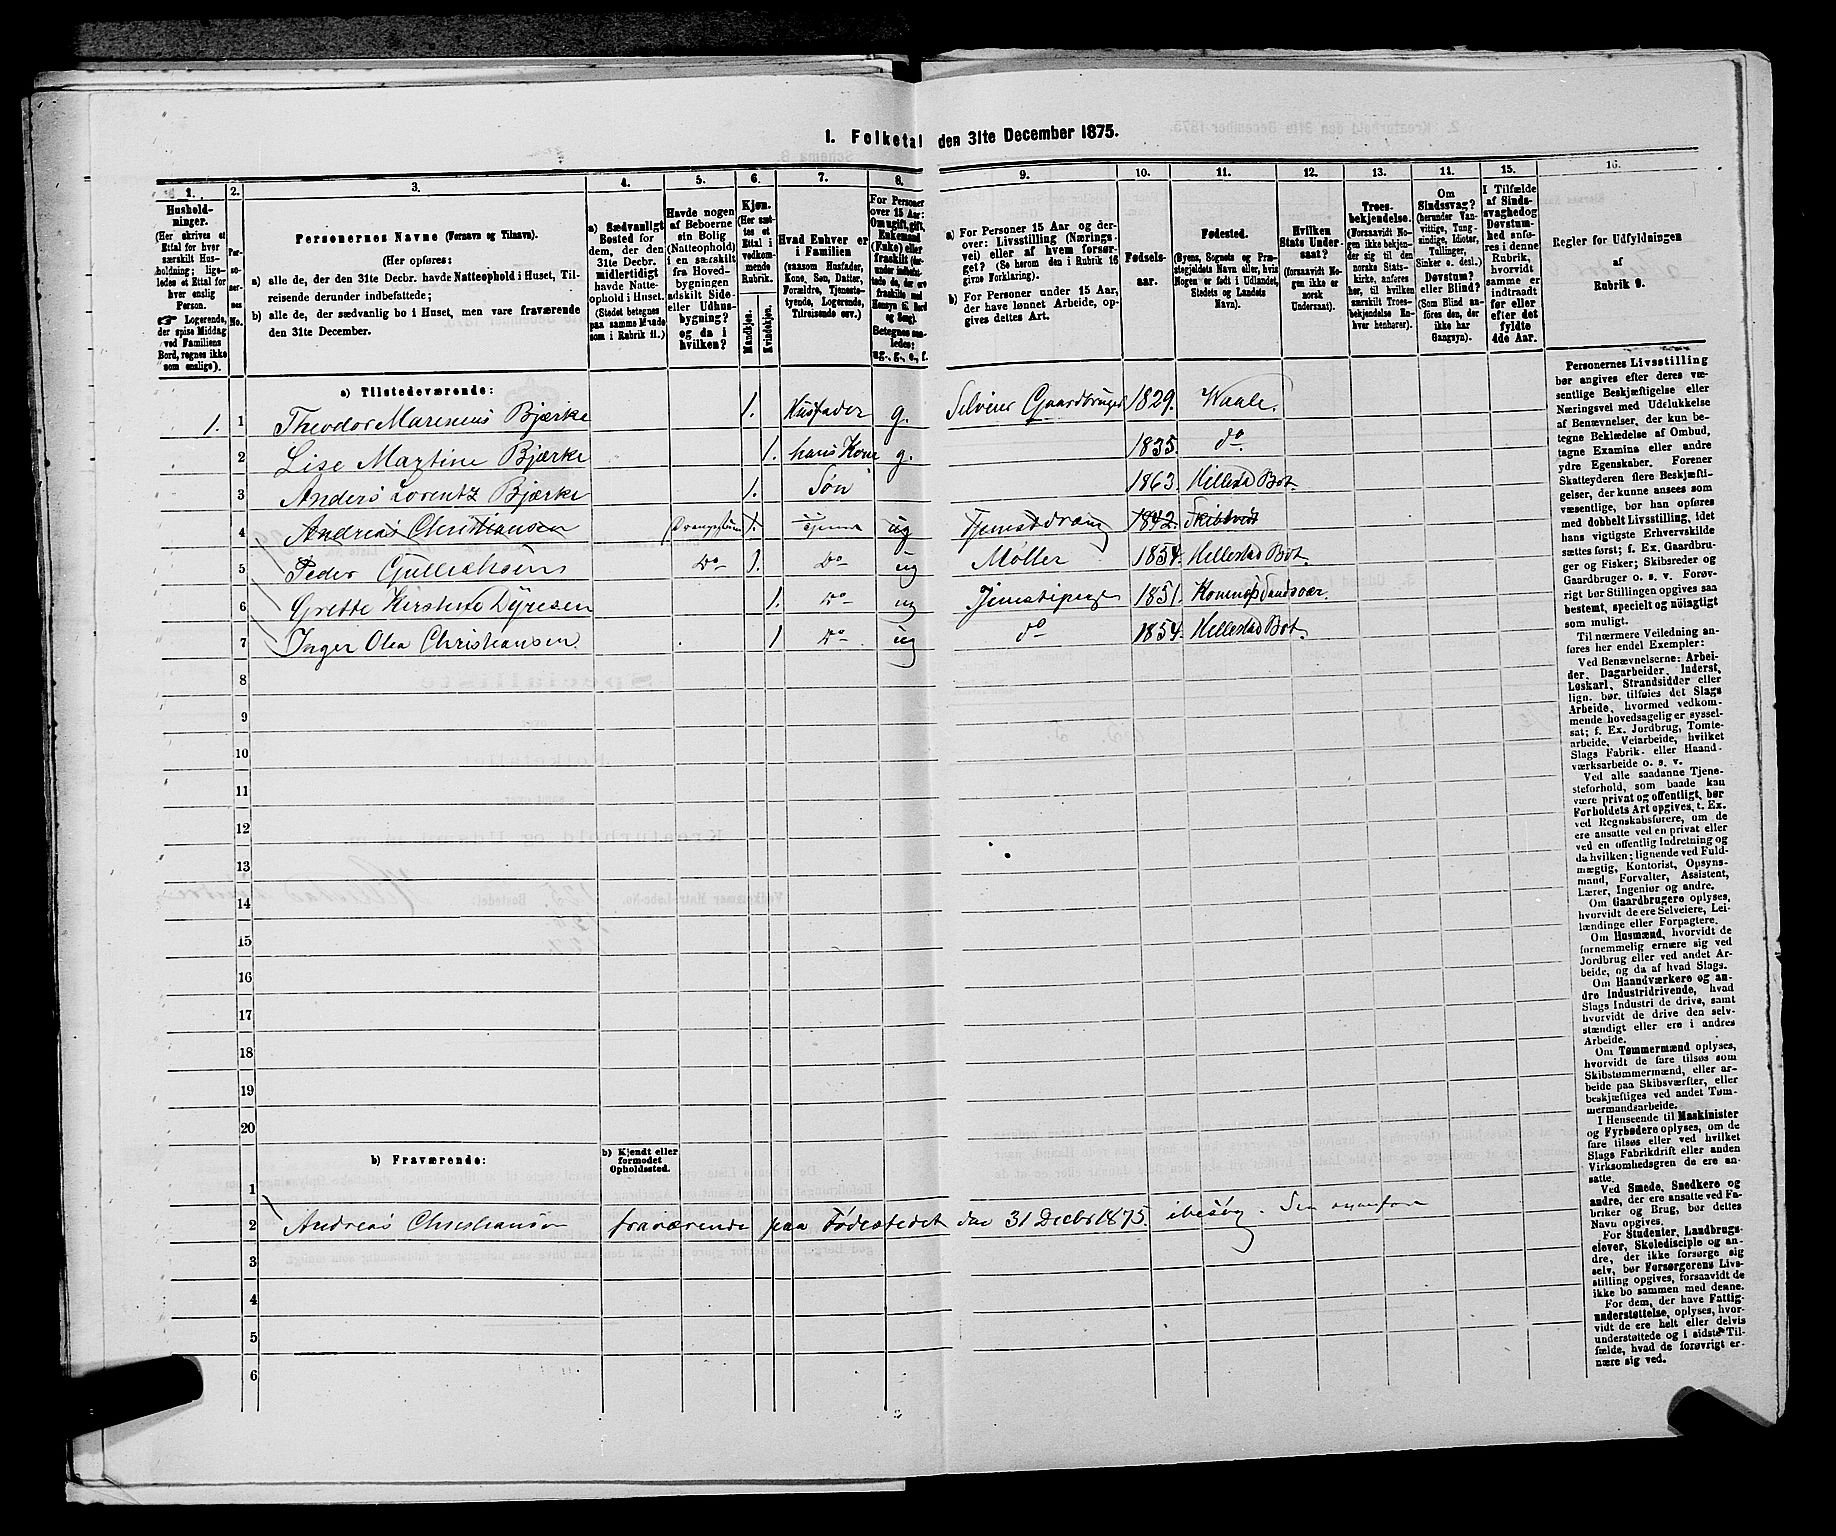 1. Folketal den 31te December 1875.
1.
Hushold-
ninger.
(Her skrives et
Ettal for hver
særskilt Hus-
holdning; lige-
ledes et Ettal for
hver enslig
Person.
☞ Logerende,
der spise Middag
ved Familiens
Bord, regnes ikke
som enslige).
2.
Per-
soner-
nes
No.
3.
Personernes Navne (Fornavn og Tilnavn).
(Her opføres:
a) alle de, der den 31te Decbr. havde Natteophold i Huset, Til-
reisende derunder indbefattede;
b) alle de, der sædvanlig bo i Huset, men vare fraværende
den 31te December.
4.
a) Sædvanligt
Bosted for
dem, der den
31te Decbr.
midlertidigt
havde Natte-
ophold i Huset.
(Stedet betegnes
paa samme Maade
som i Rubrik 11.)
5.
Havde nogen
af Beboerne
sin Bolig
(Natteophold)
i en særskilt
fra Hoved-
bygningen
adskilt Side-
eller Udhus-
bygning?
og da i
hvilken?
6.
Kjøn.
(Her sæt-
tes et
Ettal i
vedkom-
mende
Rubrik.
Mandkjøn.
Kvindekjøn.
7.
Hvad Enhver er
i Familien
(saasom Husfader,
Kone, Søn, Datter,
Forældre, Tjeneste-
tyende, Logerende,
Tilreisende osv.)
8.
For Personer
over 15 Aar:
Om ugift, gift,
Enkemand
(Enke) eller
fraskilt
Betegnes saa-
ledes:
ug., g., e., f.
9.
a) For Personer 15 Aar og der-
over: Livsstilling (Nærings-
vei) eller af hvem forsør-
get? (Se herom den i Rubrik 16
givne Forklaring).
b) For Personer under 15 Aar,
der have lønnet Arbeide, op-
gives dettes Art.
10.
Fødsels-
aar.
11.
Fødested.
(Byens, Sognets og Præ-
stegjeldets Navn eller, hvis
Nogen er født i Udlandet,
Stedets og Landets
Navn).
12.
Hvilken
Stats Under-
saat?
(forusaavidt No-
gen ikke er
norsk
Undersaat).
13.
Troes-
bekjendelse.
(Forsaavidt No-
gen ikke bekjen-
der sig til den
norske Stats-
kirke, anføres
her, til hvilken
særskilt Troes-
bekjendelse En-
hver henhører).
11.
Om
Sindssvag?
(herunder Van-
vittige, Tung-
sindige, Idioter,
Tullinger,
Sinker o. desl.)
Døvstum?
eller Blind?
(Som Blind an-
føres den, der
ikke har
Gangsyn).
15.
I Tilfælde
af Sinds-
svaghed og
Døvstum-
hed anføres
i denne
Rubrik,
hvorvidt
samme er
indtraadt
før eller
efter det
fyldte
4de Aar.
16.
Regler for Udfyldningen
af
Rubrik 9.
a) Tilstedeværende:
1. 1 Theodor Marenius Bjærke 1. Husfader g. Selveier Gaardbruger 1829. Waale.
2 Lise Martine Bjærke 1. hans Kone g. 1835. do
3 Anders Lorentz Bjærke 1. Søn 1863. Hillestad Bot.
4 Andreas Christiansen 1. ug Tjenestdreng 1842. Skibtvedt
5 Peder Gulliksen Do 1. Do ug Møller 1854. Hellestad Bot.
6 Grette Kirstine Dyresen 1. Do ug Tjenestepige 1851. Komnes Sandsvær.
7 Inger Olea Christiansen. 1 Do ug do 1854. Hellestad Bot.
8
9
10
11
12
13
14
15
16
17
18
19
20
b) Fraværende:
b) Kjendt eller
formodet
Opholdssted.
1
2 Andreas Christiansen fraværende paa Fødestedet den 31 Decbr 1875. ibesøg. Se ovenfor
3
4
5
6
Personernes Livsstilling
bør angives efter deres væ-
sentlige Beskjæftigelse eller
Næringsvei med Udelukkelse
af Benævnelser, der kun be-
tegne Beklædelse af Ombud,
tagne Examina eller andre
ydre Egenskaber. Forener
Skatteyderen flere Beskjæfti-
gelser, der kunne ansees som
væsentlige, bør han opføres
med dobbelt Livsstilling, idet
hans vigtigste Erhvervskilde
sættes først; f. Ex. Gaardbru-
ger og Fisker; Skibsreder og
Gaardbruger o. s. v. Forøv-
rigt bør Stillingen opgives saa
bestemt, specielt og nøiagtigt
som muligt.
Til nærmere Veiledning an-
føres her endel Exempler:
Ved Benævnelserne: Arbei-
der, Dagarbeider, Inderst,
Løskarl, Strandsidder eller
lign. bør tilføies det Slags
Arbeide, hvormed vedkom-
mende hovedsagelig er syssel-
sat; f. Ex. Jordbrug, Tomte-
arbeide, Veiarbeide, hvilket
Slags Fabrik- eller Haand-
værksarbeide o. s. v.
Ved alle saadanne Tjene-
steforhold, som baade kan
være privat og offentligt, bør
Forholdets Art opgives, t. Ex.
ved Regnskabsførere, om de
ere ansatte ved en privat eller
ved en offentlig Indretning og
da hvilken; lignende ved Fuld-
mægtig, Kontorist, Opsyns-
mand, Forvalter, Assistent,
Lærer, Ingeniør og andre.
Om Gaardbrugere oplyses,
hvorvidt de ere Selveiere, Lei-
lændinge eller Forpagtere.
Om Husmænd, hvorvidt de
fornemmelig ernære sig ved
Jordbrug eller ved andet Ar-
beide, og da af hvad Slags.
Om Haandværkere og an-
dre Industridrivende, hvad
Slags Industri de drive, samt
hvorvidt de drive den selv-
stændigt eller ere i andres
Arbeide.
Om Tømmermænd oplyses,
hvorvidt de fare tilsøs som
Skibstømmermænd, eller ar-
beide paa Skibsværfter, eller
beskjæftiges ved andet Tøm-
mermandsarbeide.
I Henseende til Maskinister
og Fyrbødere oplyses, om de
fare tilsøs eller ved hvilket
Slags Fabrikdrift eller anden
Virksomhedsgren de ere an-
satte.
Ved Smede, Snedkere og
andre, der ere ansatte ved Fa-
briker og Brug, bør dettes
Navn opgives.
For Studenter, Landbrugs-
elever, Skoledisciple og an-
dre, der ikke forsørge sig
selv, bør Forsørgerens Livs-
stilling opgives, forsaavidt de
ikke bo sammen med denne.
For dem, der have Fattig-
understøttelse, oplyses, hvor-
vidt de ere helt eller delvis
understøttede og i sidste Til-
fælde, hvad de forøvrigt er-
nære sig ved.